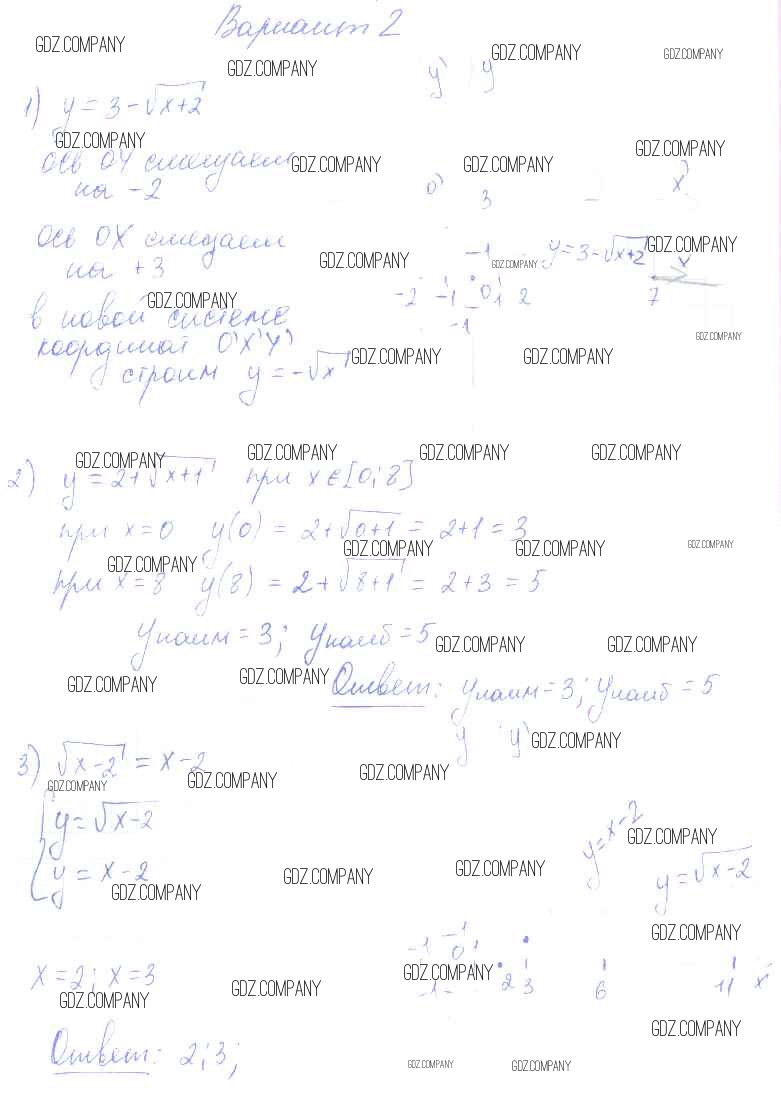 Вариант 2
GDZ.COMPANY GDZ.COMPANY GDZ.COMPANY GDZ.COMPANY
y' y
1) y = 3 - √x+2
GDZ.COMPANY GDZ.COMPANY GDZ.COMPANY GDZ.COMPANY
ось OY смещаем
на -2
0' 3 x'
ось OX смещаем
на +3
GDZ.COMPANY GDZ.COMPANY GDZ.COMPANY
-1 y = 3 - √x+2 x
-2 -1 0 1 2 7
-1
GDZ.COMPANY GDZ.COMPANY
в новой системе
координат O'X'Y'
строим y = -√x
GDZ.COMPANY GDZ.COMPANY
GDZ.COMPANY GDZ.COMPANY GDZ.COMPANY GDZ.COMPANY
2) y = 2+√x+1 при x∈[0; 8]
при x=0 y(0) = 2+√0+1 = 2+1 = 3
GDZ.COMPANY GDZ.COMPANY GDZ.COMPANY GDZ.COMPANY
при x=8 y(8) = 2+√8+1 = 2+3 = 5
yнаим = 3; yнаиб = 5
GDZ.COMPANY GDZ.COMPANY
GDZ.COMPANY GDZ.COMPANY
Ответ: yнаим = 3; yнаиб = 5
y y'
GDZ.COMPANY
3) √x-2 = x-2
GDZ.COMPANY GDZ.COMPANY GDZ.COMPANY
{ y = √x-2
y = x-2
y = x-2
GDZ.COMPANY
y = √x-2
GDZ.COMPANY GDZ.COMPANY GDZ.COMPANY
-1 -1 0 1
GDZ.COMPANY
x=2; x=3
GDZ.COMPANY
-1 2 3 6 11 x
GDZ.COMPANY GDZ.COMPANY GDZ.COMPANY
Ответ: 2; 3;
GDZ.COMPANY GDZ.COMPANY